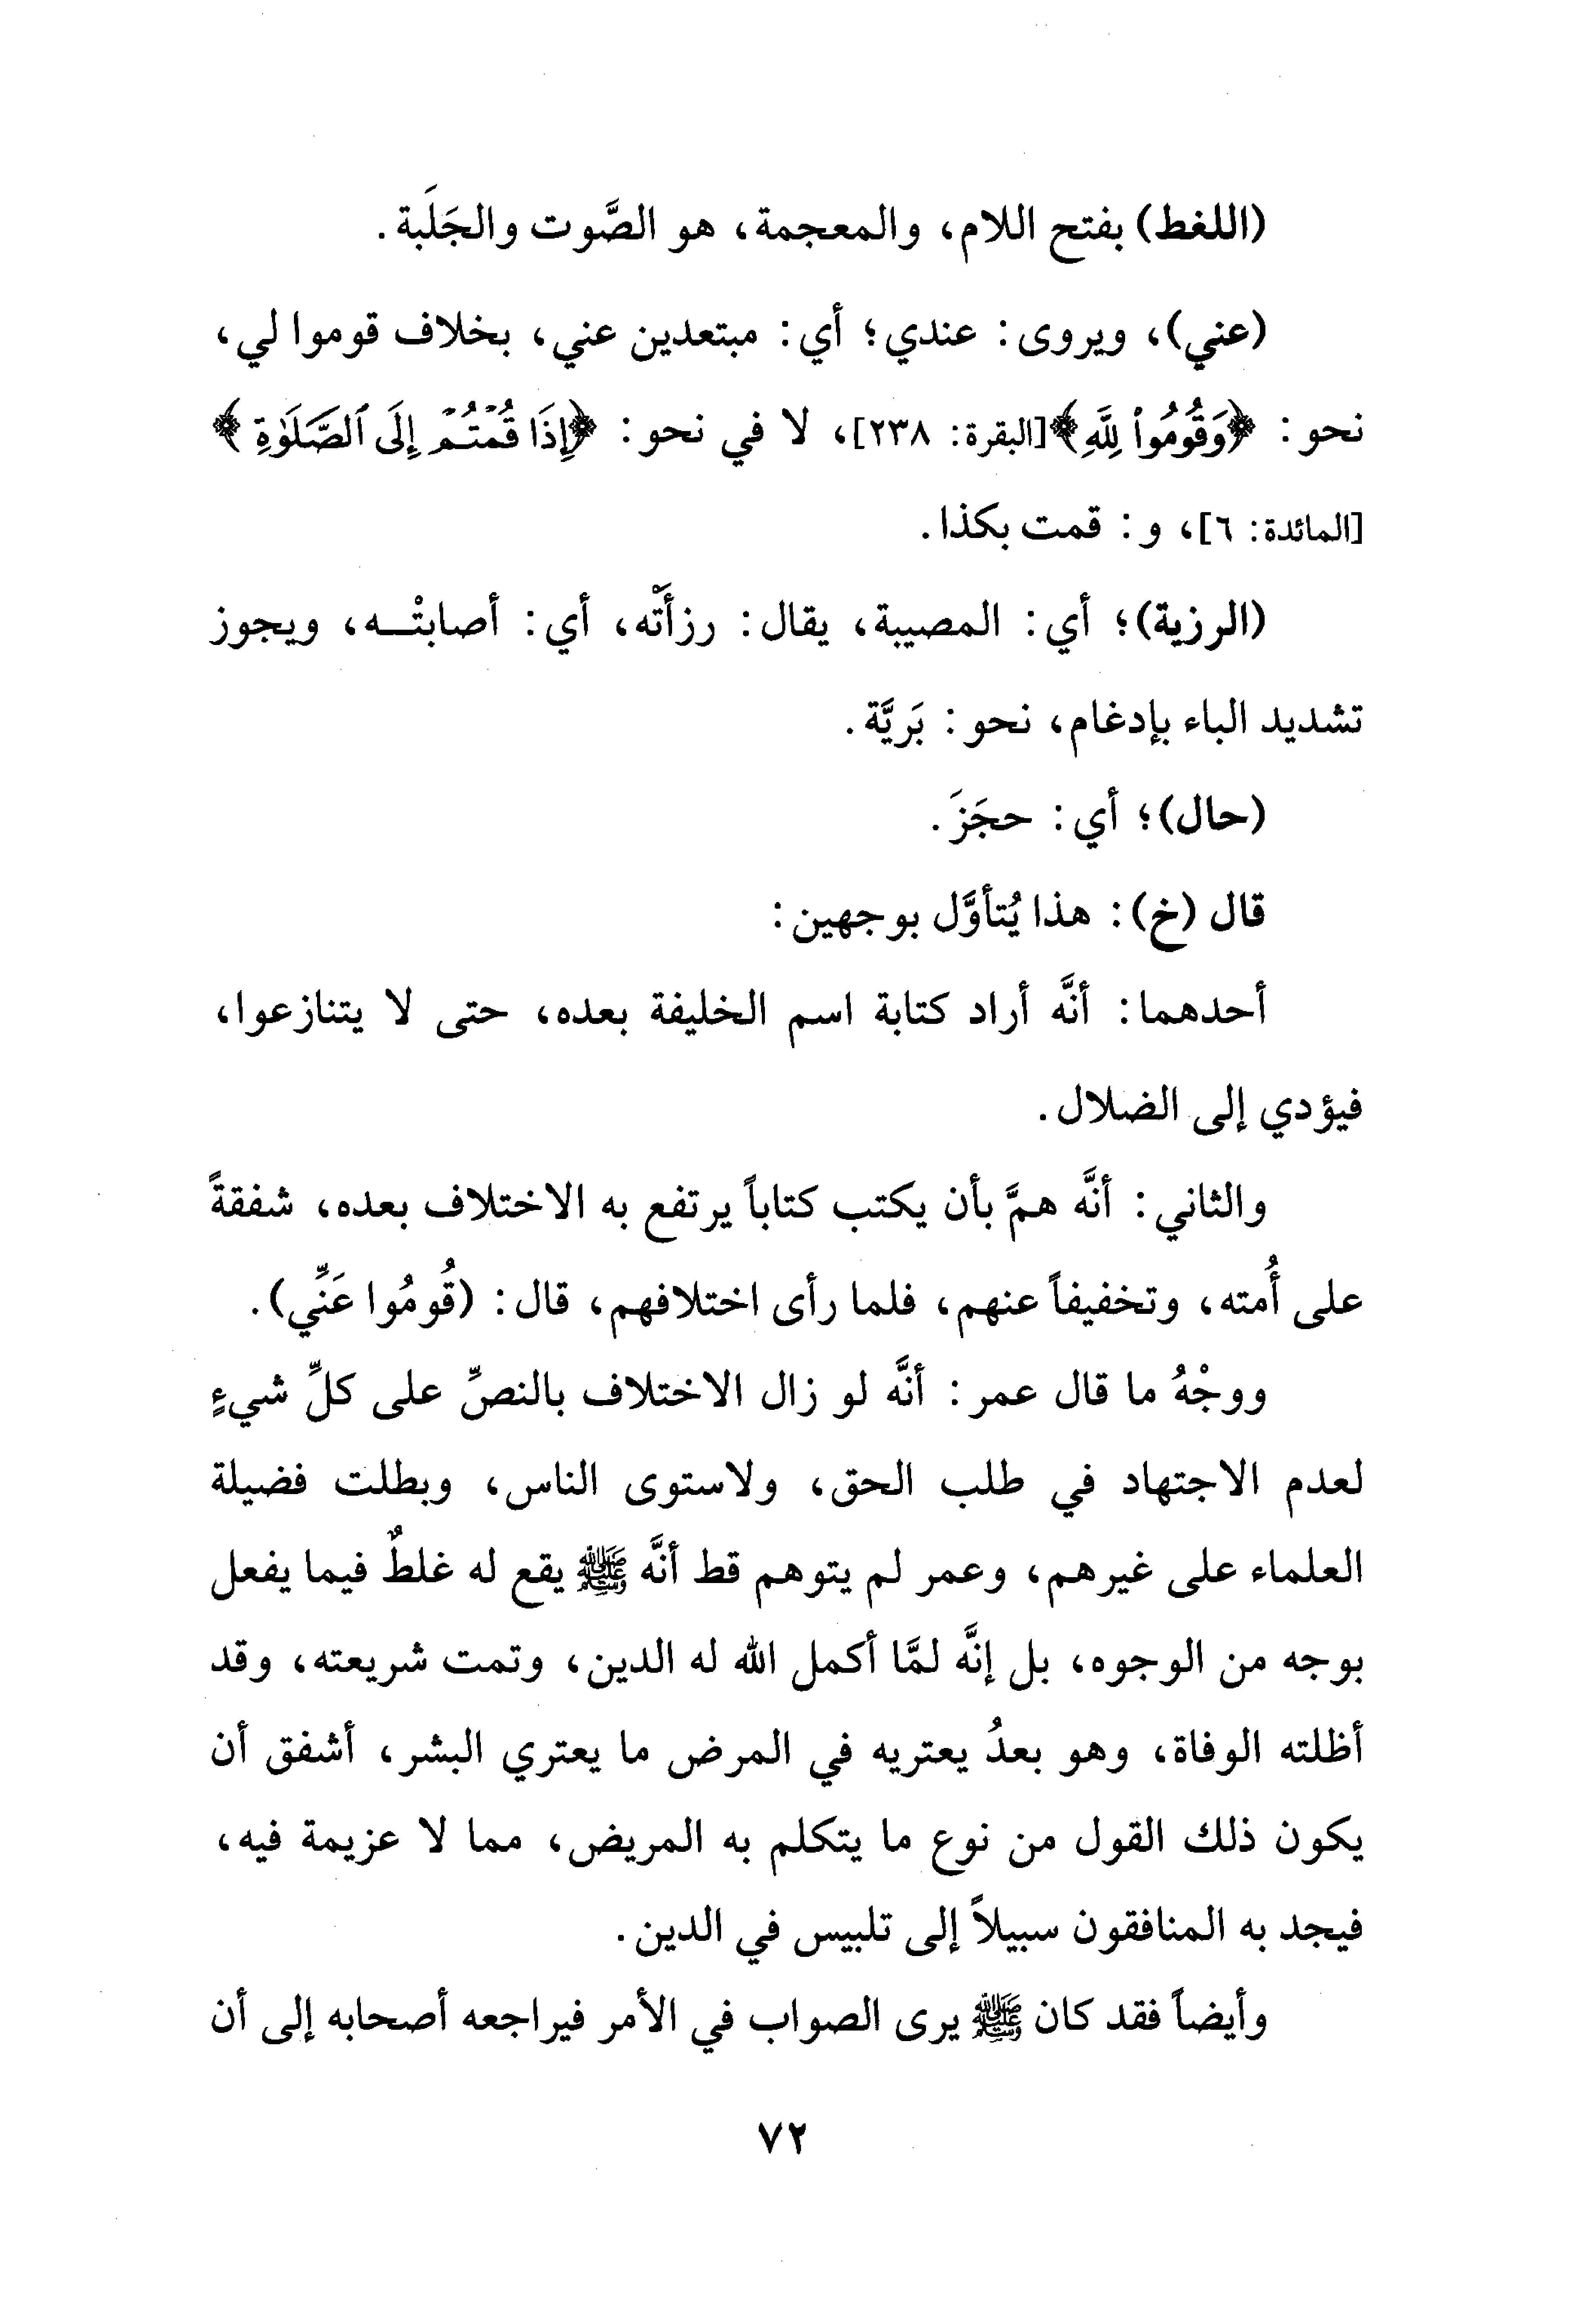 (اللغط) بفتح اللام، والمعجمة، هو الصَّوت والجَلَبة.
(عني)، ويروى: عندي؛ أي: مبتعدين عني، بخلاف قوموا لي،
نحو: ﴿وَقُومُوا۟ لِلَّهِ﴾[البقرة: ٢٣٨]، لا في نحو: ﴿إِذَا قُمْتُمْ إِلَى ٱلصَّلَوٰةِ﴾
[المائدة: ٦]، و: قمت بكذا.
(الرزية)؛ أي: المصيبة، يقال: رزأَتْه، أي: أصابتْـه، ويجوز
تشديد الباء بإدغام، نحو: بَريَّة.
(حال)؛ أي: حجَزَ.
قال (خ): هذا يُتأوَّل بوجهين:
أحدهما: أنَّه أراد كتابة اسم الخليفة بعده، حتى لا يتنازعوا،
فيؤدي إلى الضلال.
والثاني: أنَّه همَّ بأن يكتب كتاباً يرتفع به الاختلاف بعده، شفقةً
على أُمته، وتخفيفاً عنهم، فلما رأى اختلافهم، قال: (قُومُوا عَنِّي).
ووجْهُ ما قال عمر: أنَّه لو زال الاختلاف بالنصِّ على كلِّ شيءٍ
لعدم الاجتهاد في طلب الحق، ولاستوى الناس، وبطلت فضيلة
العلماء على غيرهم، وعمر لم يتوهم قط أنَّه ﷺ يقع له غلطٌ فيما يفعل
بوجه من الوجوه، بل إنَّه لمَّا أكمل الله له الدين، وتمت شريعته، وقد
أظلته الوفاة، وهو بعدُ يعتريه في المرض ما يعتري البشر، أشفق أن
يكون ذلك القول من نوع ما يتكلم به المريض، مما لا عزيمة فيه،
فيجد به المنافقون سبيلاً إلى تلبيس في الدين.
وأيضاً فقد كان ﷺ يرى الصواب في الأمر فيراجعه أصحابه إلى أن
٧٢